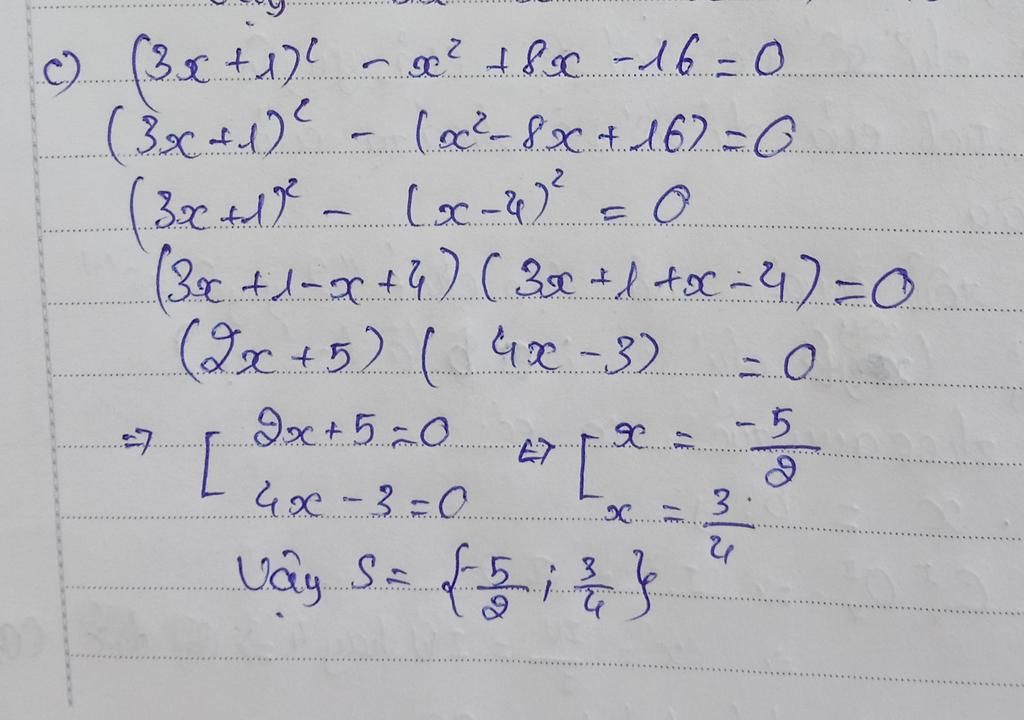 c) (3x+1)² - x² + 8x - 16 = 0
(3x+1)² - (x² - 8x + 16) = 0
(3x+1)² - (x-4)² = 0
(3x+1-x+4)(3x+1+x-4) = 0
(2x+5)(4x-3) = 0
⇒ [ 2x+5=0 ⇔ [ x = -5/2
4x-3=0 x = 3/4
Vậy S = {-5/2; 3/4}